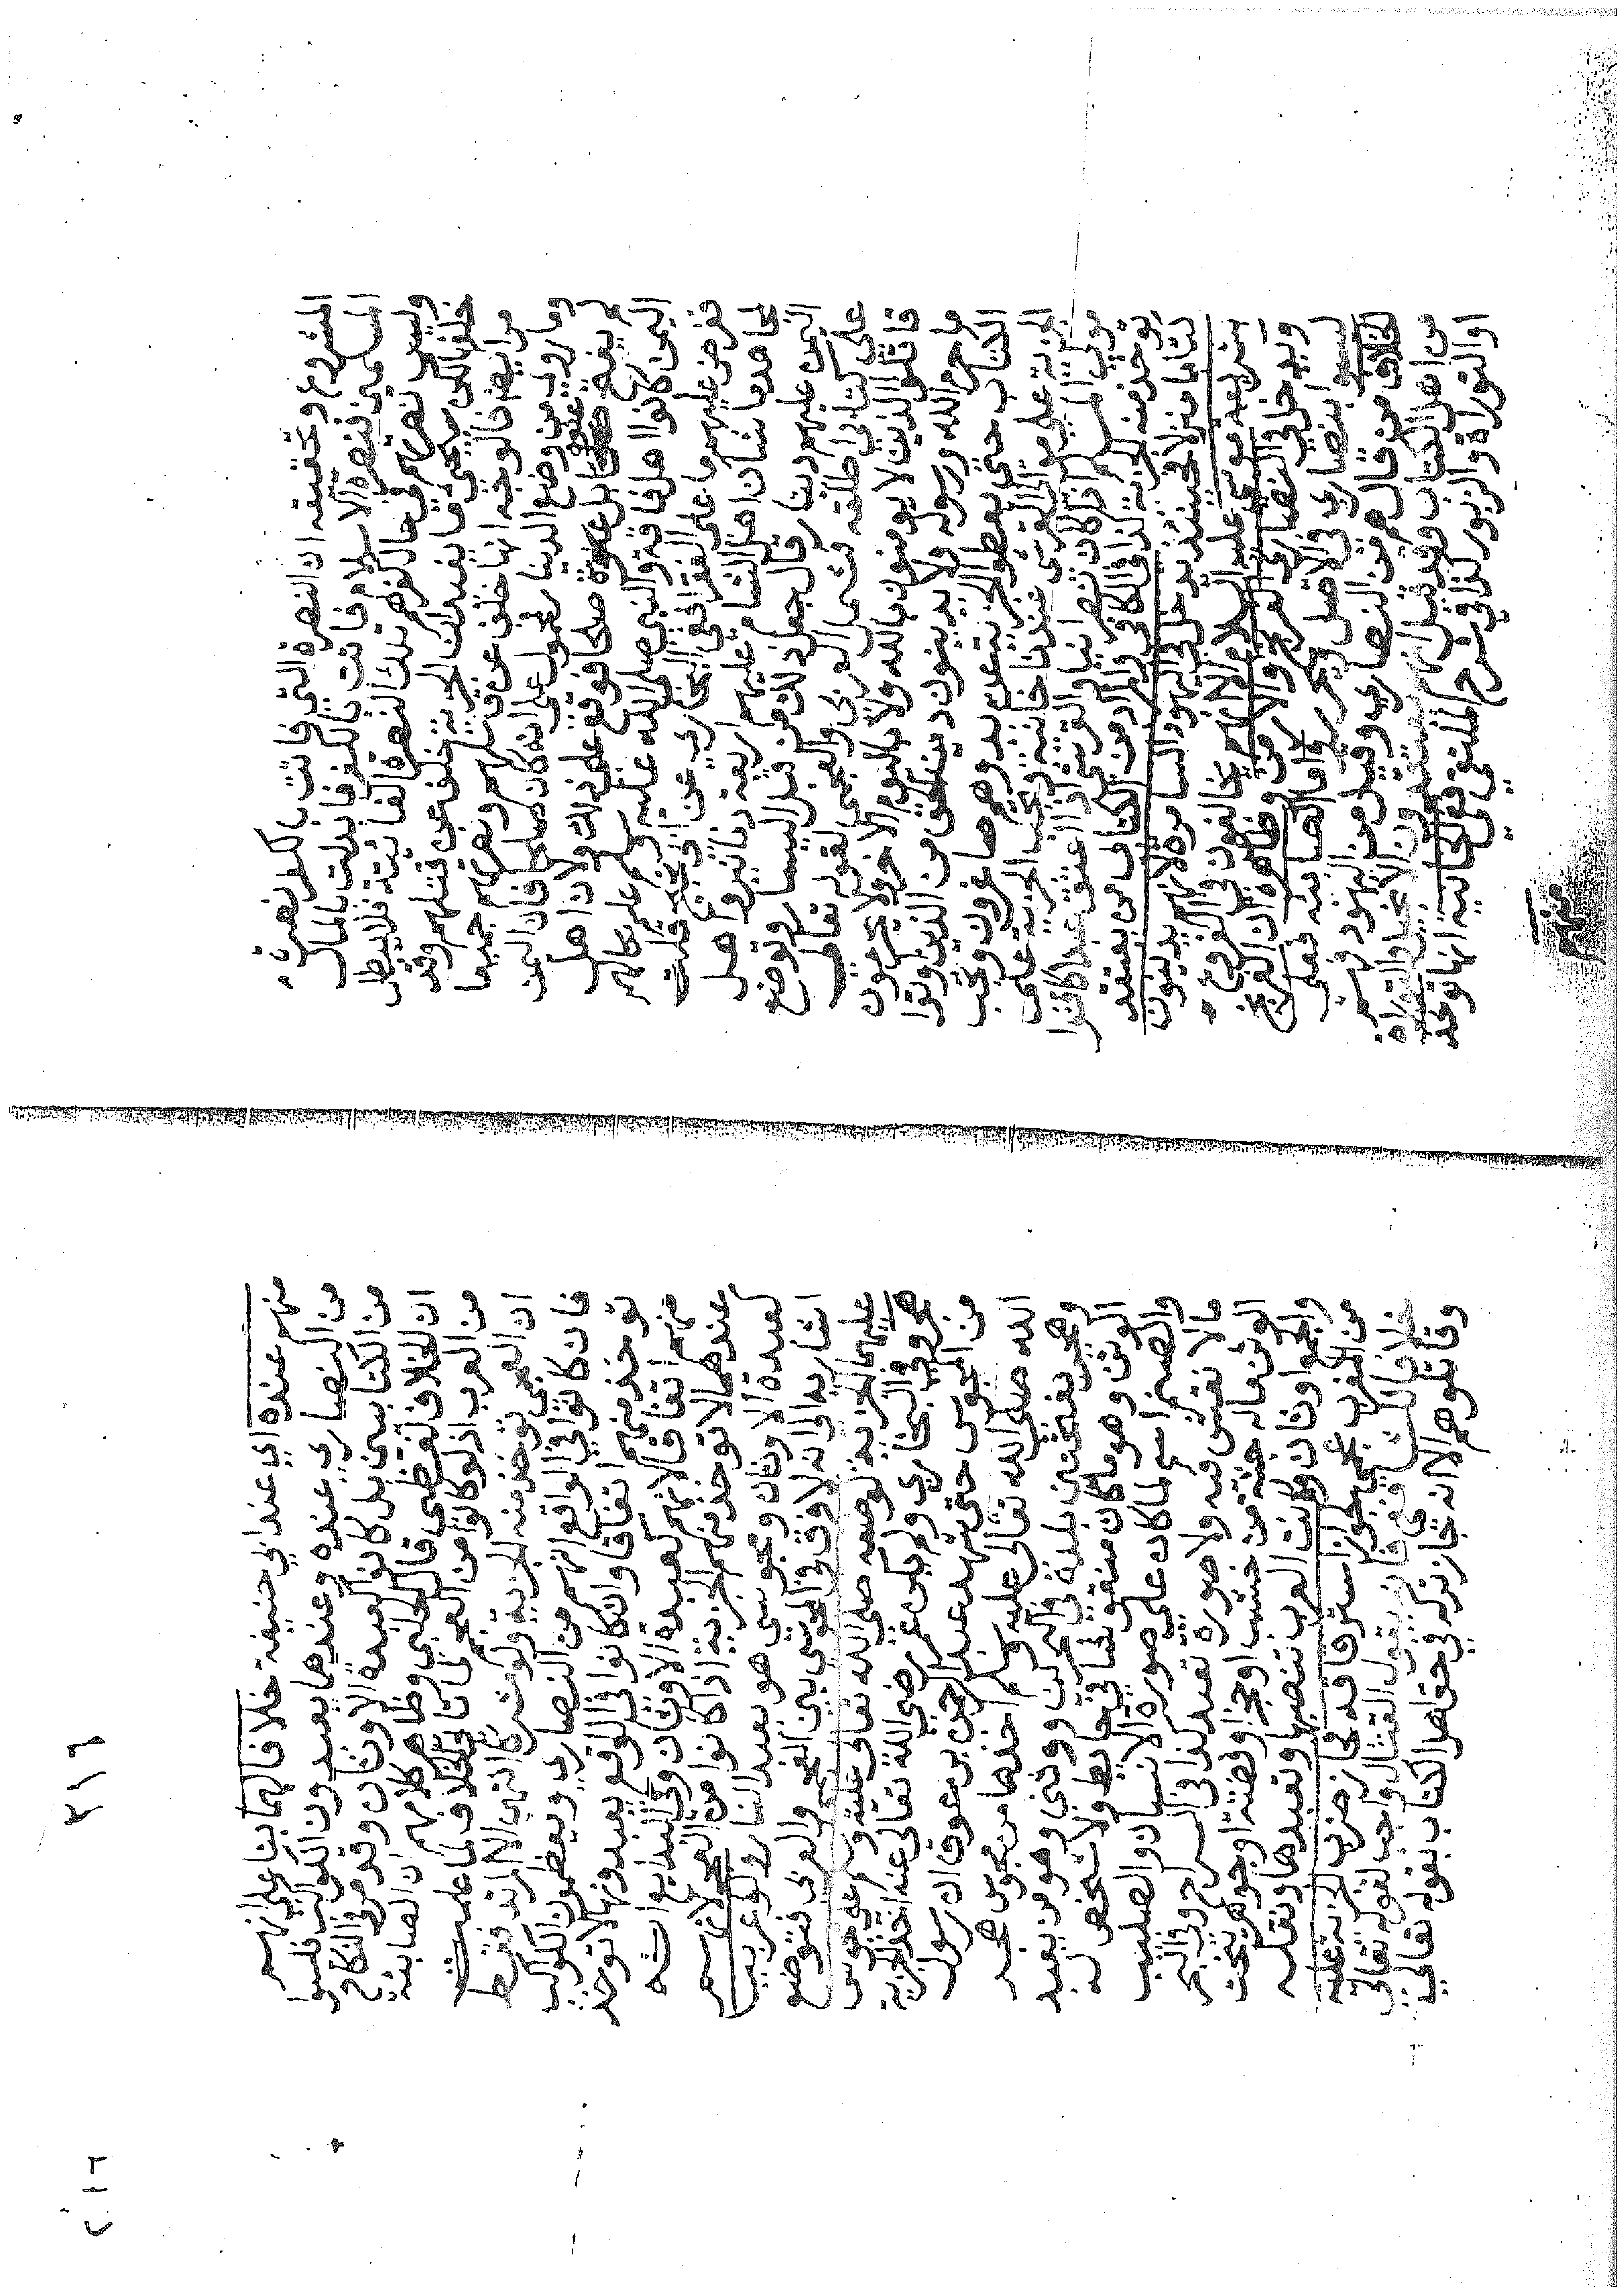 المشروع وتحقيقه ان النصرة التي فاتت بالكفر نصرة
المسلمين فنصرة الاسلام فاتت بالكفر فابدلت بالمال
وليس نصرتهم في حال كفرهم تلك النصرة الفائتة فلا يبطل
خلفها لكن يجي ما يفيد ان الجزية خلف عن قتلهم وقد
مر ايضا فالوجه انها خلف عن قتلهم ونصرتهم جميعا
وما روي من وضع الدينار محمول على انه كان صلحا فان اليمن
لم يفتح عنوة بل صلحا فوقع على ذلك ولان اهل
اليمن كانوا اهل فاقة والنبي صلى الله عليه وسلم علم بحالهم
ففرض عليهم ما على الفقرا ففي البخاري عن ابي نجيح قلت
لمجاهد ما شان اهل الشام عليهم اربعة دنانير واهل
اليمن عليهم دينار قال جعل ذلك من قبل اليسار وتوضع
على كتابي اطلقه فشمل العربي والعجمي لقوله تعالى
قاتلوا الذين لا يومنون بالله ولا باليوم الاخر ولا يحرمون
ما حرم الله ورسوله ولا يدينون دين الحق من الذين اوتوا
الكتاب حتى يعطوا الجزية عن يد وهم صاغرون وتجب
الجزية على مولى القرشي عندنا خانية وتجب الجزية على
مولى المسلم اذا كان نصرانيا والقرشي اذا اعتق عبدا كافرا
يوخذ منه الجزية كذا في الكافي والمراد من الكتابي من يعتقد
كتابا منزلا فحينئذ يدخل في اليهود السامرة لانهم يدينون
بشريعة موسى عليه السلام الا انهم يخالفون في الفروع
ويدخل في النصارى الفرنج والارمن وظاهره ان الفرنج
ليسوا بنصارى في الاصل بحر واما الصابئة فعلى
الخلاف من قال هم من النصارى وقيل من اليهود فهم
من اهل الكتاب وقد قيل انهم يعتقدون الانجيل والتوراة
او التوراة والزبور كذا في شرح الملتقى ففي الخانية انها توخذ
منهم
٢١٦
منهم عنده اي عند ابي حنيفة خلافا لهما بنا على انهم
من النصارى عنده وعندهما يعبدون الكواكب فليسوا
من الكتابيين بل كانوا كعبدة الاوثان وقد مر في النكاح
ان الخلاف لفظي قال الحلبي وظاهر كلامهم ان الصابئة
من العرب اذ لو كانوا من العجم لما تاتى الخلاف لما علمت
ان العجمي توخذ منه الجزية ولو مشركا انتهى الا المرتد فقط
فان كانوا في الواقع انهم من النصارى ويعظمون الكواكب
توخذ منهم اتفاقا وان كانوا في الواقع يعبدونها لا توخذ
منهم اتفاقا لانهم كعبدة الاوثان وفي البدايع انه
عندهما لا توخذ منهم الجزية اذا كانوا من العجم لانهم
كعبدة الاوثان ومجوسي هو يعبد النار ولو عربيا
اشار به الى انه لا فرق في المجوسي بين العجمي والعربي فتوضع
عليهما الجزية لوضعه صلى الله تعالى عليه وسلم على مجوس
هجر وفي البخاري ولم يكن عمر رضي الله تعالى عنه اخذ الجزية
من المجوس حتى شهد عبد الرحمن بن عوف ان رسول
الله صلى الله تعالى عليه وسلم اخذها من مجوس هجر
وهجر بفتحتين بلدة في البحرين ووثني وهو من يعبد
الوثن وهو ما كان منقوشا في حايط ولا شخص له
والصنم اسم لما كان على صورة الانسان والصليب
ما لا نقش فيه ولا صورة تعبد كذا في السراج وفي البحر
الوثن ماله جثة من خشب او حجر او فضة او جوهر ينحت
والجمع اوثان وكانت العرب تنصبها وتعبدها ونقله
من المغرب عجمي لجواز استرقاقه فجاز ضرب الجزية عليه
خلافا للشافعي فانه يقول القتال واجب لقوله تعالى
وقاتلوهم الا انه جاز تركه في حق اهل الكتاب بقوله تعالى
٢١٦